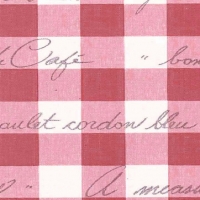 Café " bon
poulet cordon bleu
" A measu